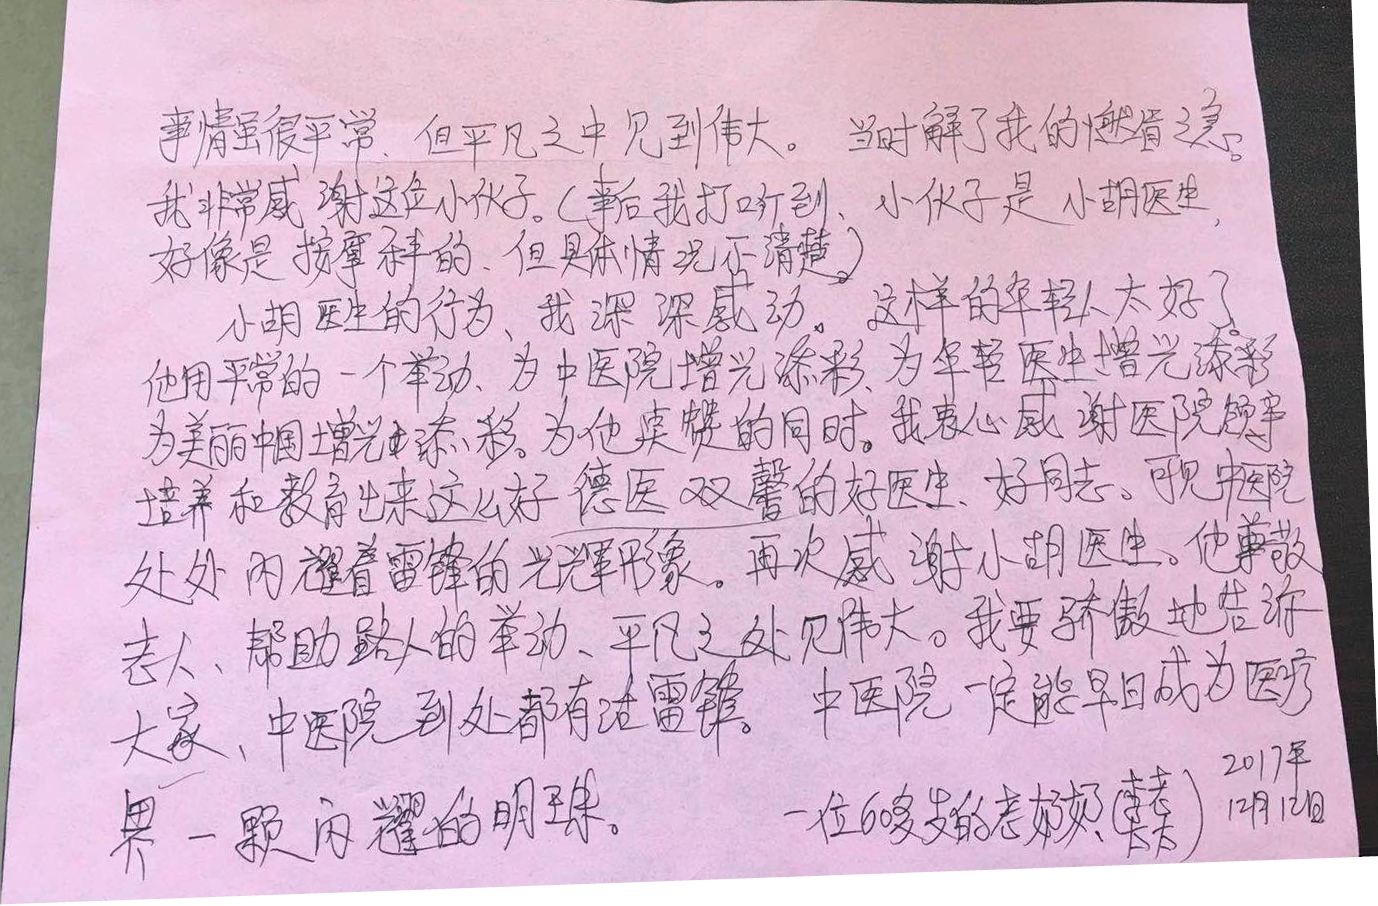 事情虽很平常、但平凡之中见到伟大。 当时解了我的燃眉之急。
我非常感谢这位小伙子。(事后我打听到、小伙子是小胡医生,
好像是按摩科的、但具体情况不清楚。)
小胡医生的行为、我深深感动。这样的年轻人太好了。
他用平常的一个举动、为中医院增光添彩、为年轻医生增光添彩
为美丽中国增光添彩。为他点赞的同时。我衷心感谢医院领导
培养和教育出来这么好德医双馨的好医生、好同志。可见中医院
处处闪耀着雷锋的光辉形象。再次感谢小胡医生。他尊敬
老人、帮助路人的举动、平凡之处见伟大。我要骄傲地告诉
大家、中医院到处都有活雷锋。 中医院一定能早日成为医疗
界一颗闪耀的明珠。
一位60多岁的老奶奶(
2017年
12月12日